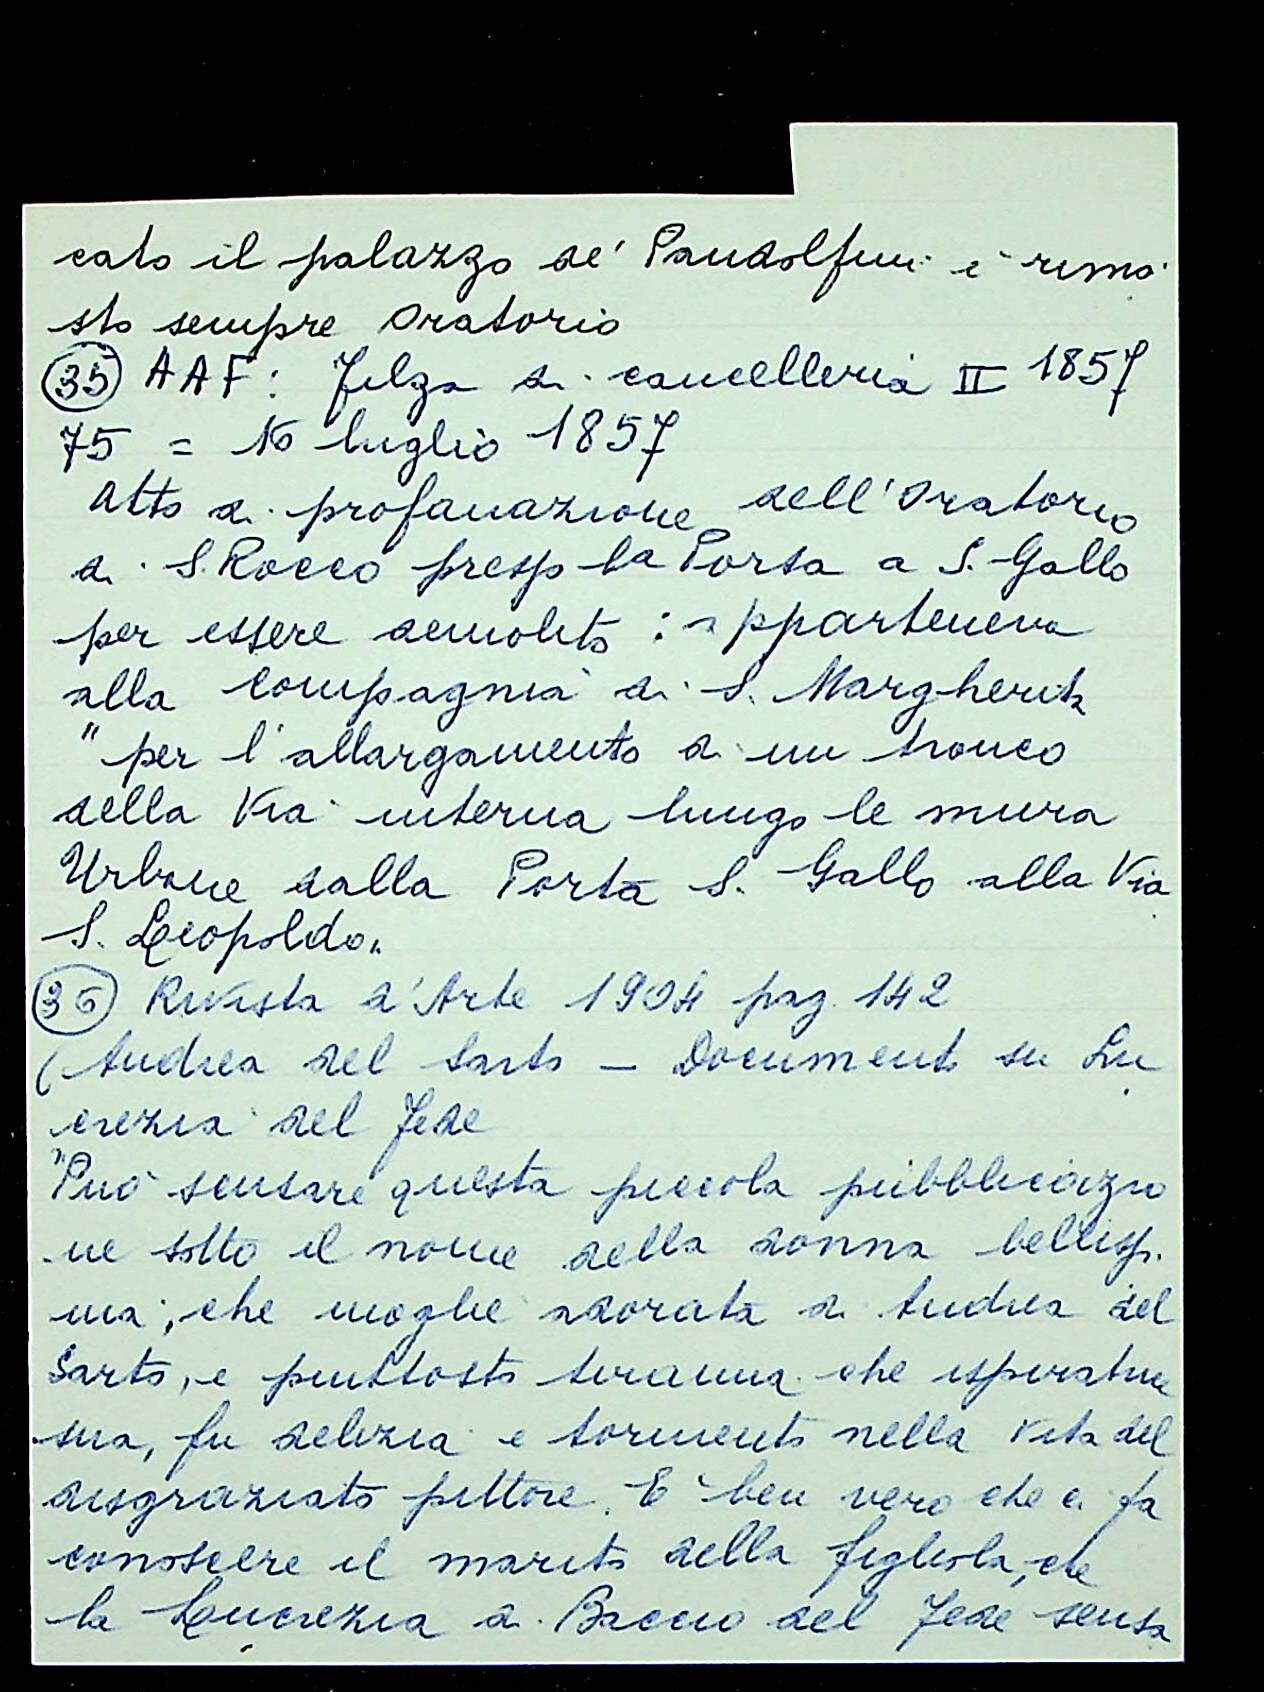 cato il palazzo de' Pandolfini è rima
sto sempre oratorio
(35) AAF: Filza di cancelleria II 1857
75 = 10 luglio 1857
Atto di profanazione dell'Oratorio
di S. Rocco presso la Porta a S. Gallo
per essere demolito : apparteneva
alla Compagnia di S. Margherita
"per l'allargamento di un tronco
della Via interna lungo le mura
Urbane dalla Porta S. Gallo alla Via
S. Leopoldo"
(36) Rivista d'Arte 1904 pag. 142
(Andrea del Sarto - Documenti su Lu
crezia del Fede
"Può sensare questa piccola pubblicazio
ne sotto il nome della donna bellissi
ma, che moglie adorata di Andrea del
Sarto, e piuttosto tiranna che ispiratrice
sua, fu delizia e tormento nella vita del
disgraziato pittore. È ben vero che ci fa
conoscere il marito della figliola, che
la Lucrezia di Baccio del Fede senza